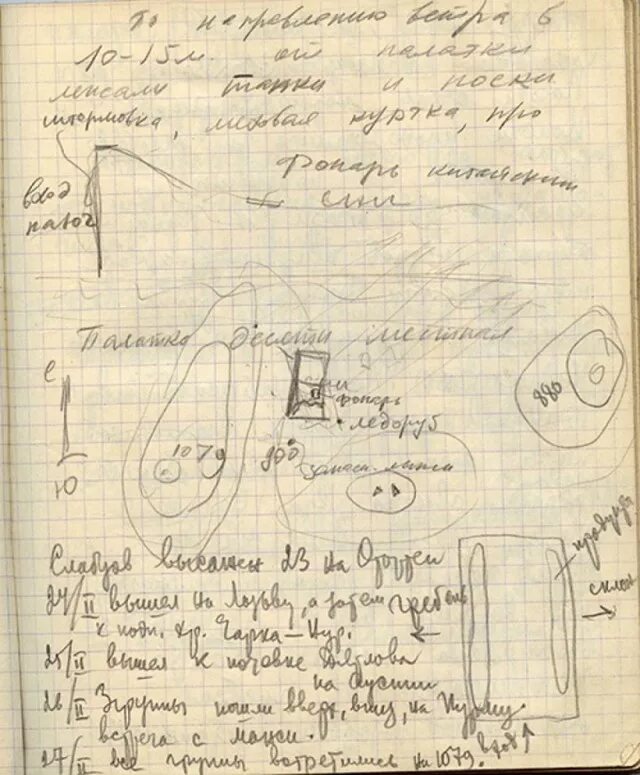 По направлению ветра в
10-15 м. от палатки
лежали тапки и носки
штормовка, меховая куртка, про
Фонарь китайский
вход
палат
Палатка десяти местная
С
Ю
фонарь
ледоруб
1079
800
880
запасн. лыжи
продукты
склон
Слабцов высажен 23 на Отортен
24/II вышел на Лозьву, а затем гребень
к подн. хр. Чарка-Нур.
25/II вышел к ночевке Дятлова
на Ауспии
26/II 3 группы пошли вверх, вниз, на
встреча с манси.
27/II все группы встретились на 1079.
вход